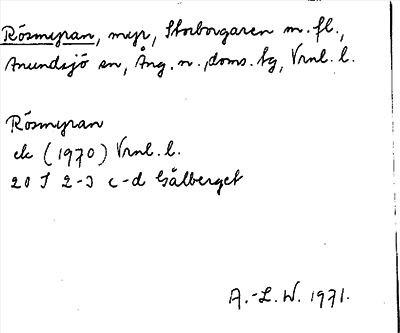 Rösmyran, myr, Storborgaren m. fl.,
Anundsjö sn, Ång. n., doms. tg, Vrnl. l.
Rösmyran
ek (1970) Vrnl. l.
20 J 2-3 c-d Gålberget
A.-L. W. 1971.